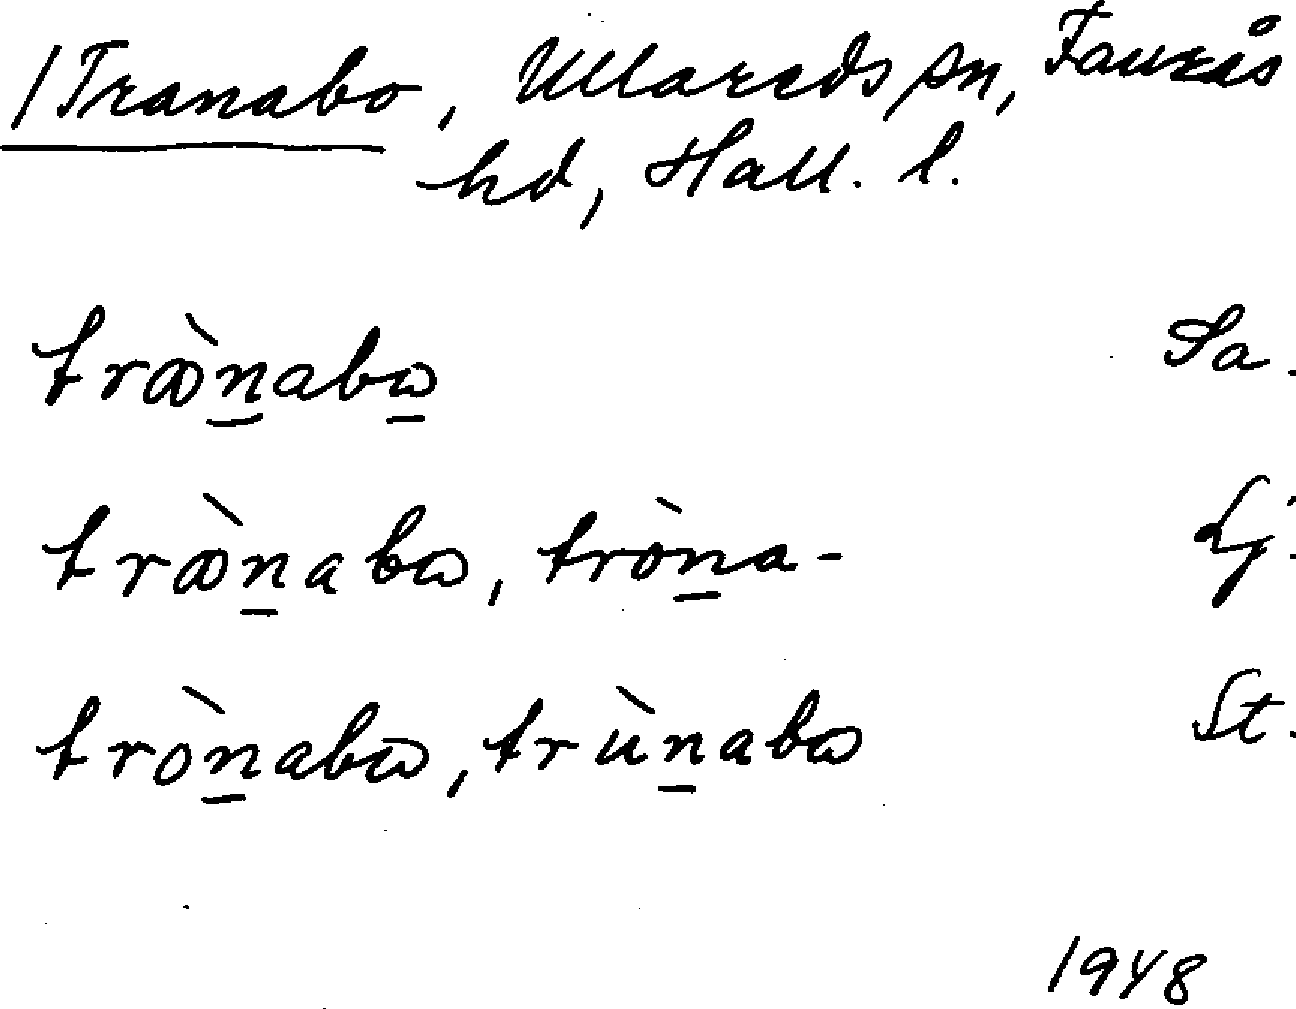 /Tranabo, Ullareds sn, Faurås
hd, Hall. l.
trꜵ̀n̲abω̲ Sa.
trꜵ̀n̲abω, tròn̲a- Lj.
tròn̲abω, trùn̲abω St.
1948